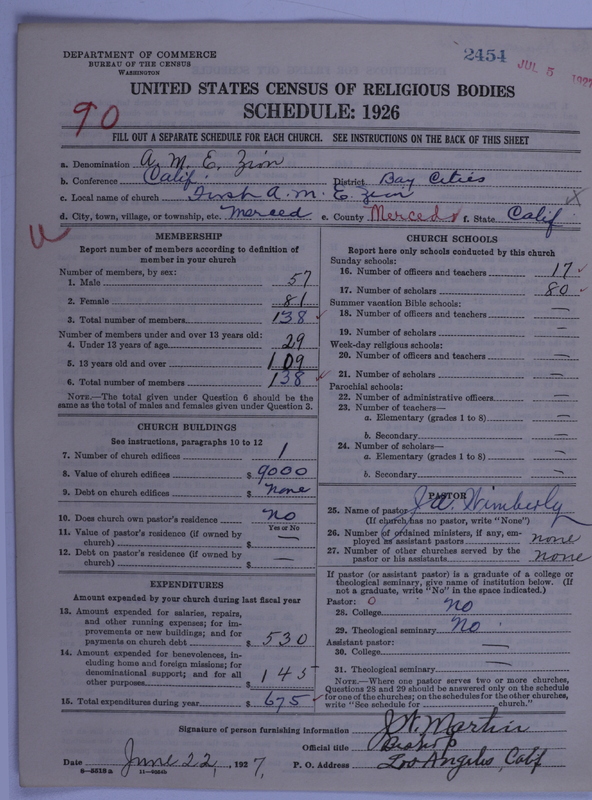 2454
JUL 5 1927
DEPARTMENT OF COMMERCE
BUREAU OF THE CENSUS
WASHINGTON
UNITED STATES CENSUS OF RELIGIOUS BODIES
SCHEDULE: 1926
90
FILL OUT A SEPARATE SCHEDULE FOR EACH CHURCH. SEE INSTRUCTIONS ON THE BACK OF THIS SHEET
a. Denomination A. M. E. Zion
b. Conference Calif District Bay Cities
c. Local name of church First A. M. E. Zion
d. City, town, village, or township, etc. Merced e. County Merced f. State Calif
MEMBERSHIP
Report number of members according to definition of member in your church
Number of members, by sex:
1. Male 57
2. Female 81
3. Total number of members 138
Number of members under and over 13 years old:
4. Under 13 years of age 29
5. 13 years old and over 109
6. Total number of members 138
NOTE.—The total given under Question 6 should be the
same as the total of males and females given under Question 3.
CHURCH BUILDINGS
See instructions, paragraphs 10 to 12
7. Number of church edifices 1
8. Value of church edifices $ 9000
9. Debt on church edifices $ none
10. Does church own pastor's residence no
Yes or No
11. Value of pastor's residence (if owned by
church) $ —
12. Debt on pastor's residence (if owned by
church) $ —
EXPENDITURES
Amount expended by your church during last fiscal year
13. Amount expended for salaries, repairs,
and other running expenses; for im-
provements or new buildings; and for
payments on church debt $ 530
14. Amount expended for benevolences, in-
cluding home and foreign missions; for
denominational support; and for all
other purposes $ 145
15. Total expenditures during year $ 675
CHURCH SCHOOLS
Report here only schools conducted by this church
Sunday schools:
16. Number of officers and teachers 17
17. Number of scholars 80
Summer vacation Bible schools:
18. Number of officers and teachers —
19. Number of scholars —
Week-day religious schools:
20. Number of officers and teachers —
21. Number of scholars —
Parochial schools:
22. Number of administrative officers —
23. Number of teachers—
a. Elementary (grades 1 to 8) —
b. Secondary —
24. Number of scholars—
a. Elementary (grades 1 to 8) —
b. Secondary —
PASTOR
25. Name of pastor J. W. Wimberly
(If church has no pastor, write "None")
26. Number of ordained ministers, if any, em-
ployed as assistant pastors none
27. Number of other churches served by the
pastor or his assistants none
If pastor (or assistant pastor) is a graduate of a college or
theological seminary, give name of institution below. (If
not a graduate, write "No" in the space indicated.)
Pastor: 0
28. College No
29. Theological seminary No
Assistant pastor:
30. College —
31. Theological seminary —
NOTE.—Where one pastor serves two or more churches,
Questions 28 and 29 should be answered only on the schedule
for one of the churches; on the schedules for the other churches,
write "See schedule for church."
Signature of person furnishing information J. W. Martin
Official title Bishop
Date June 22, 1927, P. O. Address Los Angeles, Calif
8—5518 a 11—9024b